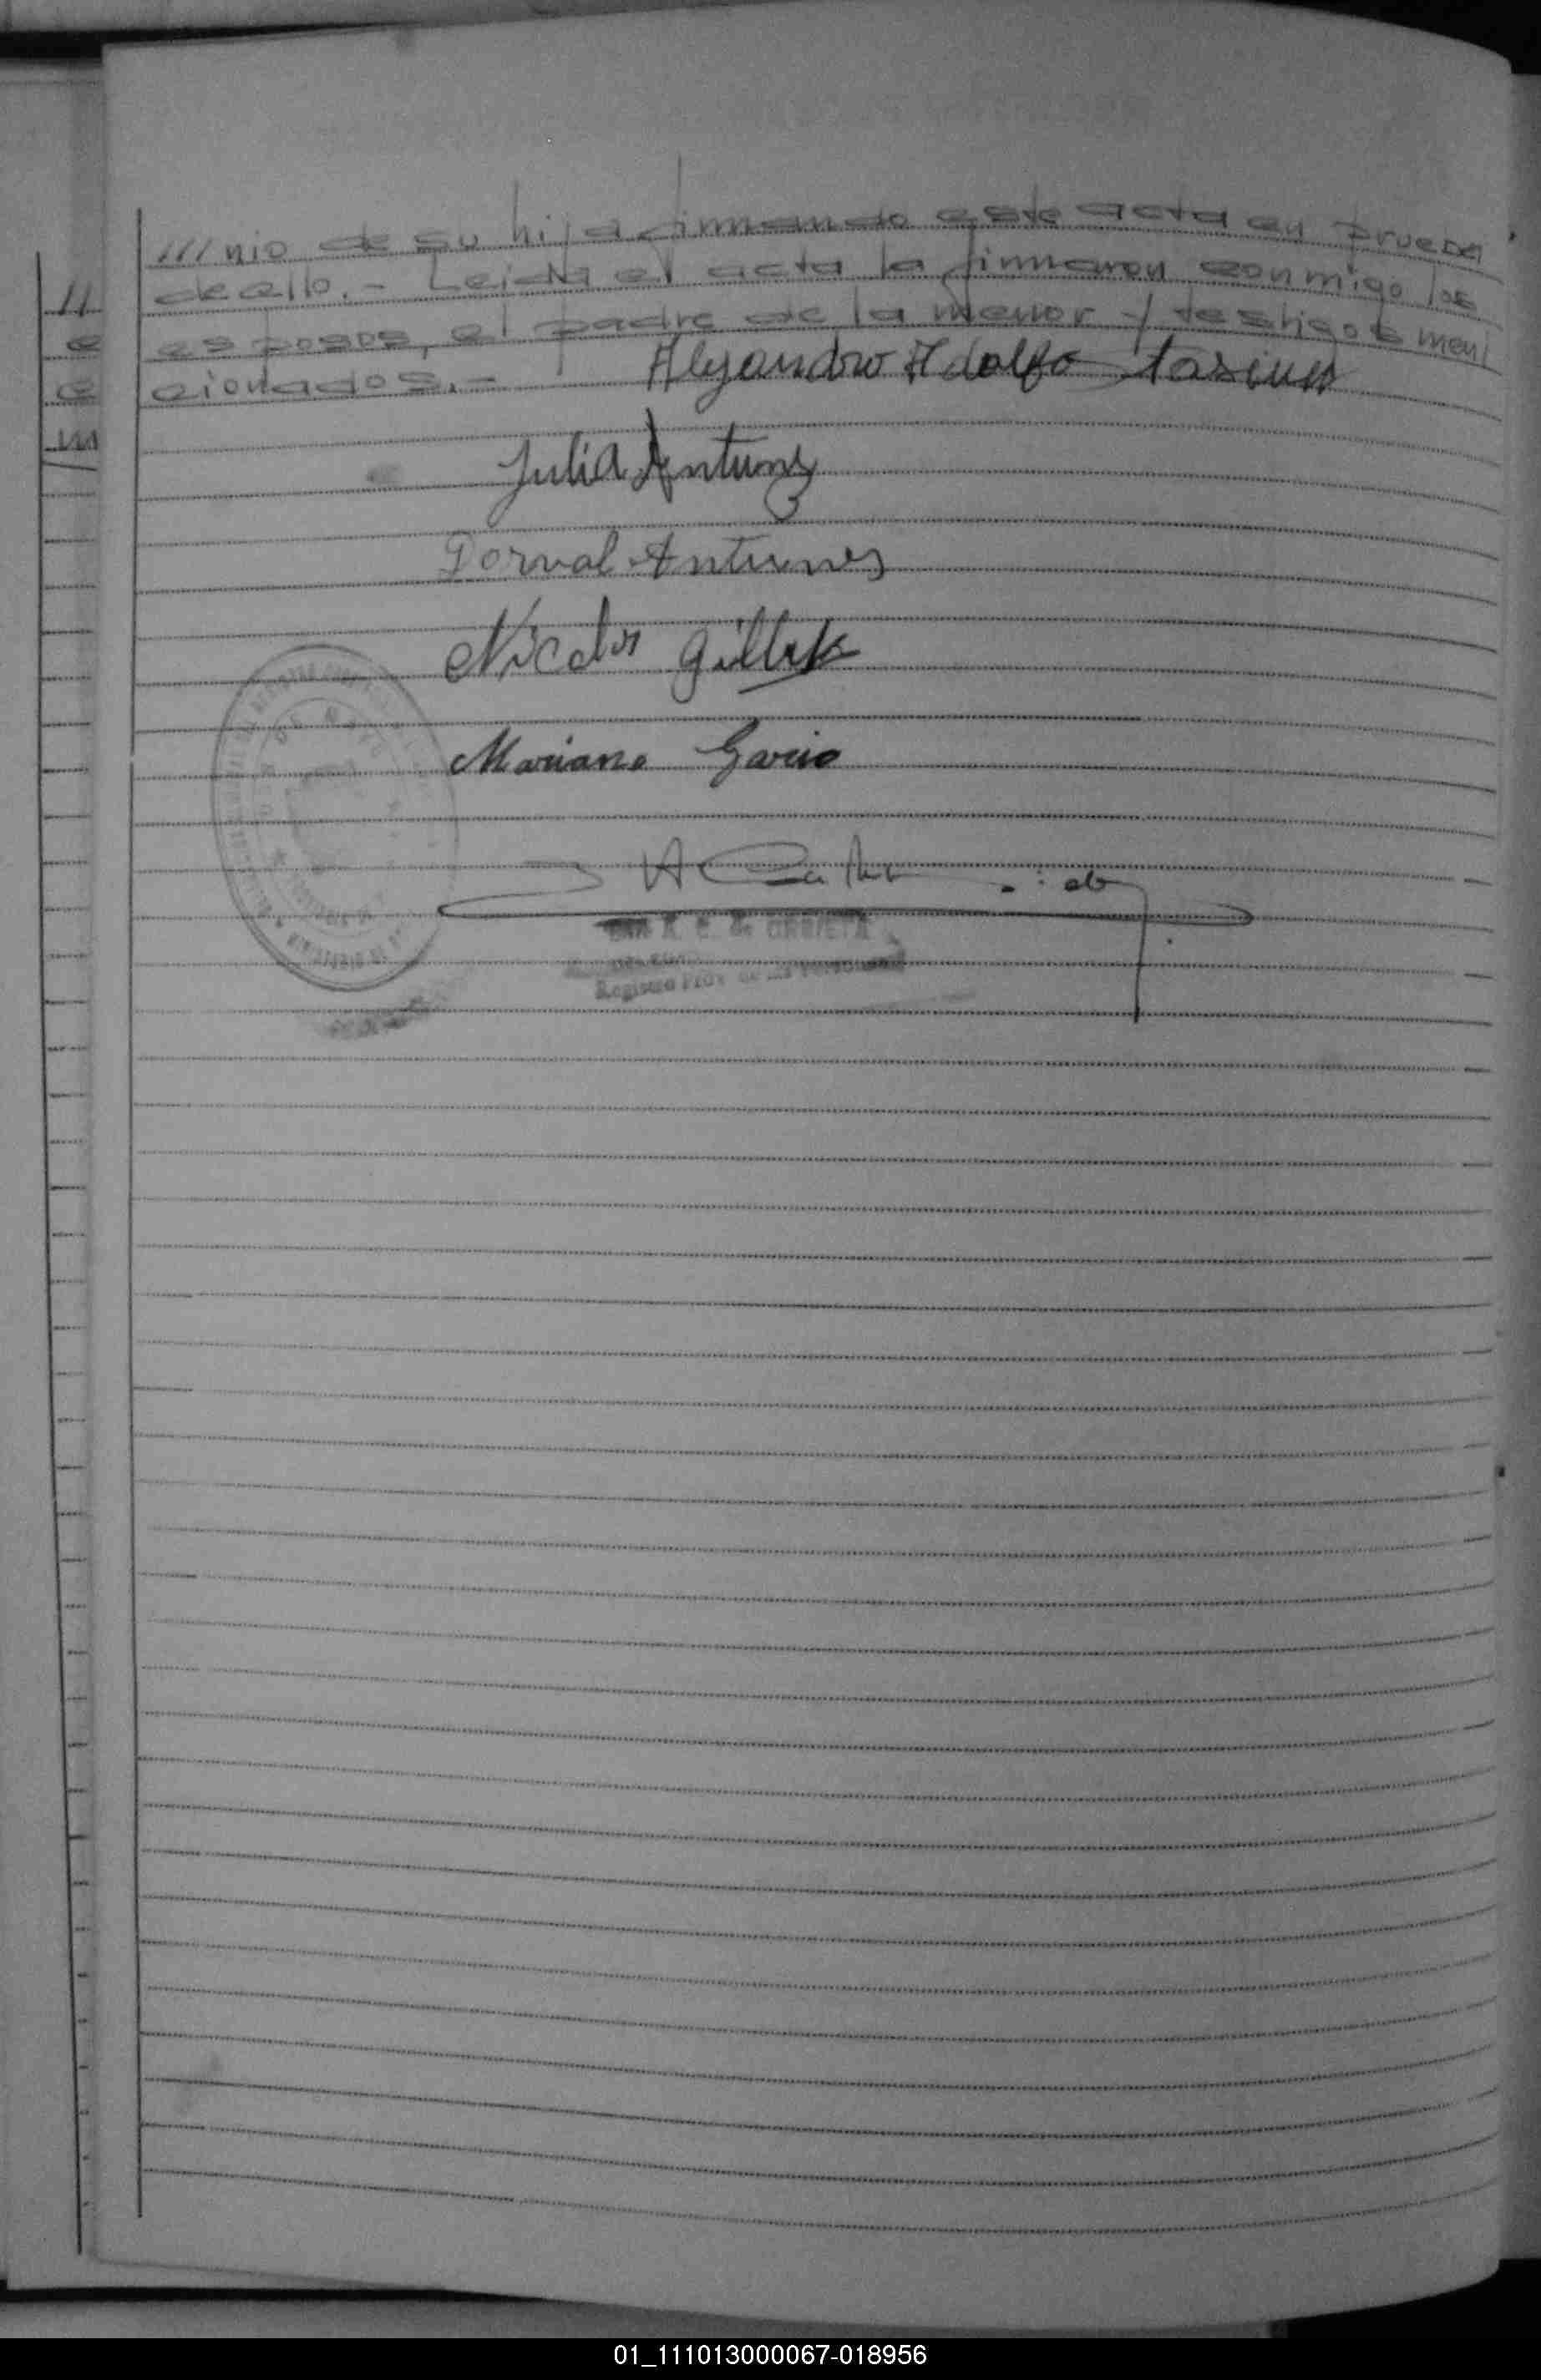 ///nio de su hija firmando este acta en prueba
de ello.- Leida el acta la firmaron conmigo los
esposos, el padre de la menor y testigos men/
cionados.- Alejandro Adolfo
Julia Antunez
Dorval Antunes
Nicolas
Mariano Garcia
Registro Prov. de las Personas
01_111013000067-018956